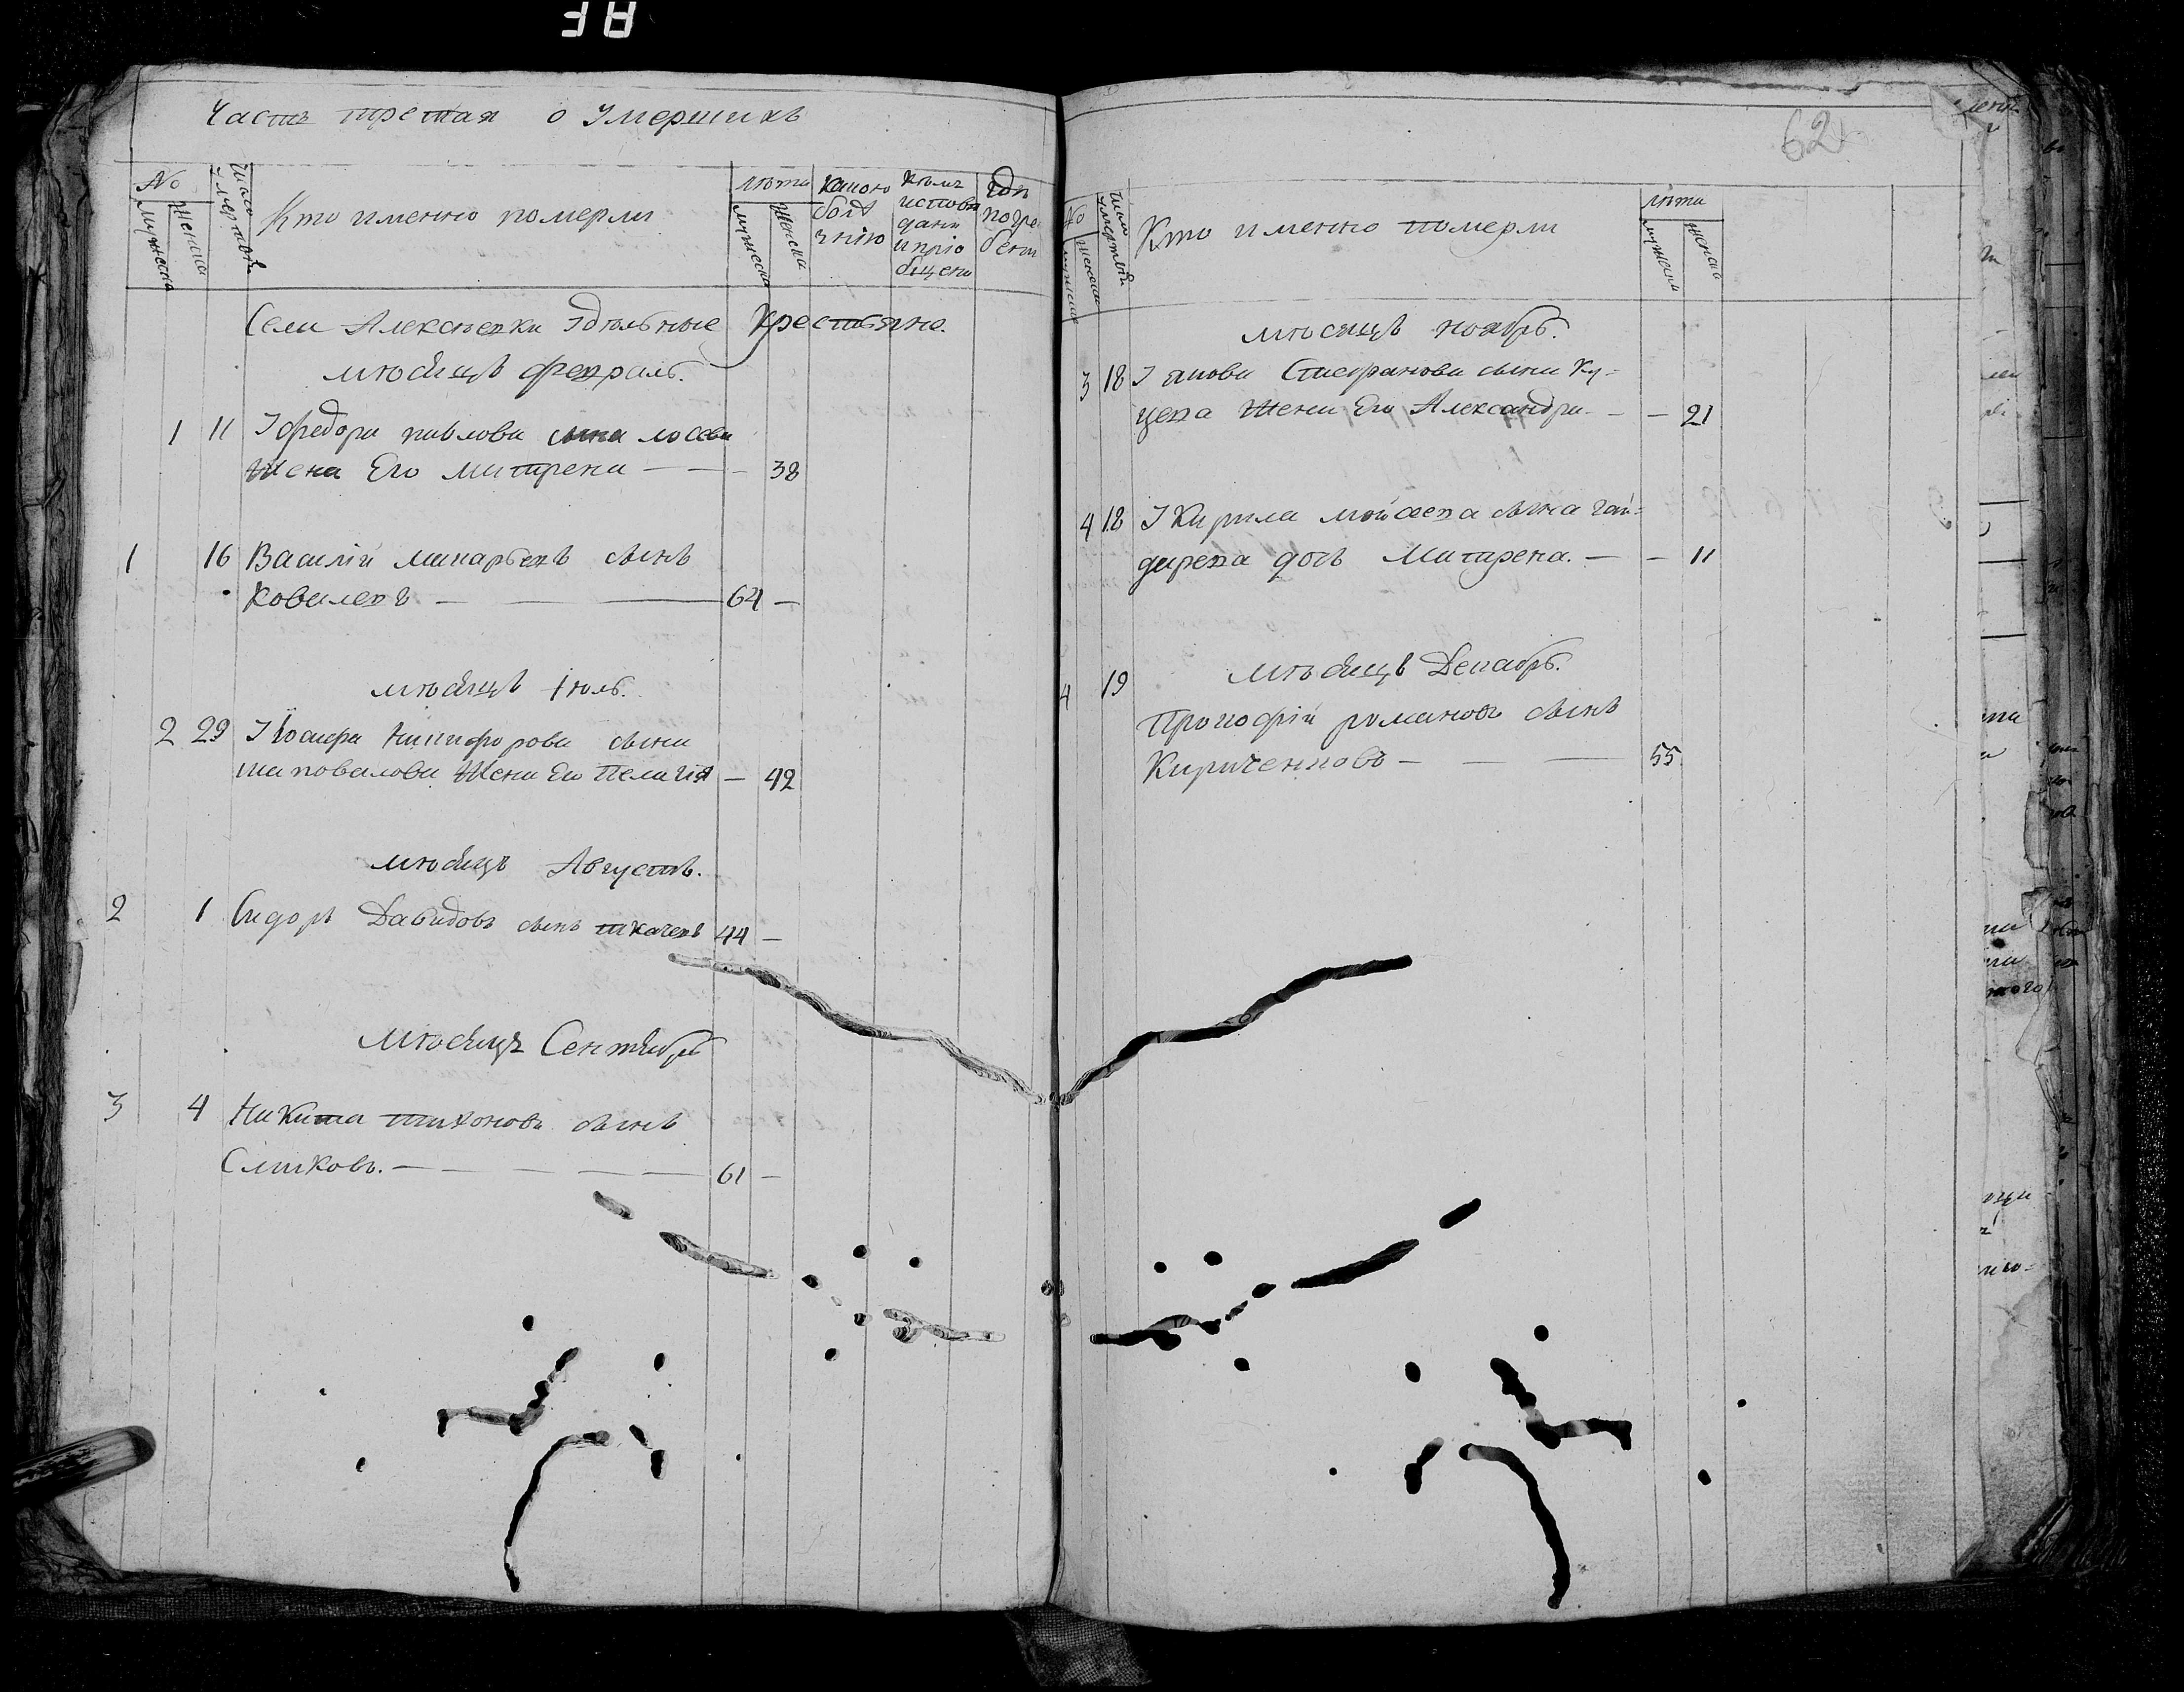 Часть третая о Умершихъ
№ мужеска женска
Число умертвій
Кто именно померли
лѣта мужеска женска
Какою болѣзнію
Кѣмъ исповѣданы и пріобщены
Гдѣ погребены
Села Алексѣевки Удѣльные Крестьяне.
мѣсяцъ февраль.
1 11 У федора павлова сына
Жена Его матрена — — — 38
1 16 Василій макарьевъ сынъ
Ковалевъ — — 64 —
мѣсяцъ Іюль.
2 29 У Іосифа Никифорова сына
шаповалова Жена Его Пелагия — 42
мѣсяцъ Августъ.
2 1 Сидоръ Давидовъ сынъ ткачевъ 44 —
мѣсяцъ Сентябрь
3 4 Никита тихоновъ сынъ
— — — — 61 —
62
№ мужеска женска
Число умертвій
Кто именно померли
лѣта мужеска женска
мѣсяцъ ноябрь.
3 18 У якова Стефанова сына Ку-
цева Жена Его Александра — — 21
4 18 У Кирила мойсеева сына гай-
дарева дочь Матрена. — — 11
мѣсяцъ Декабрь.
4 19
Прокофій романовъ сынъ
Кириченковъ — — — 55